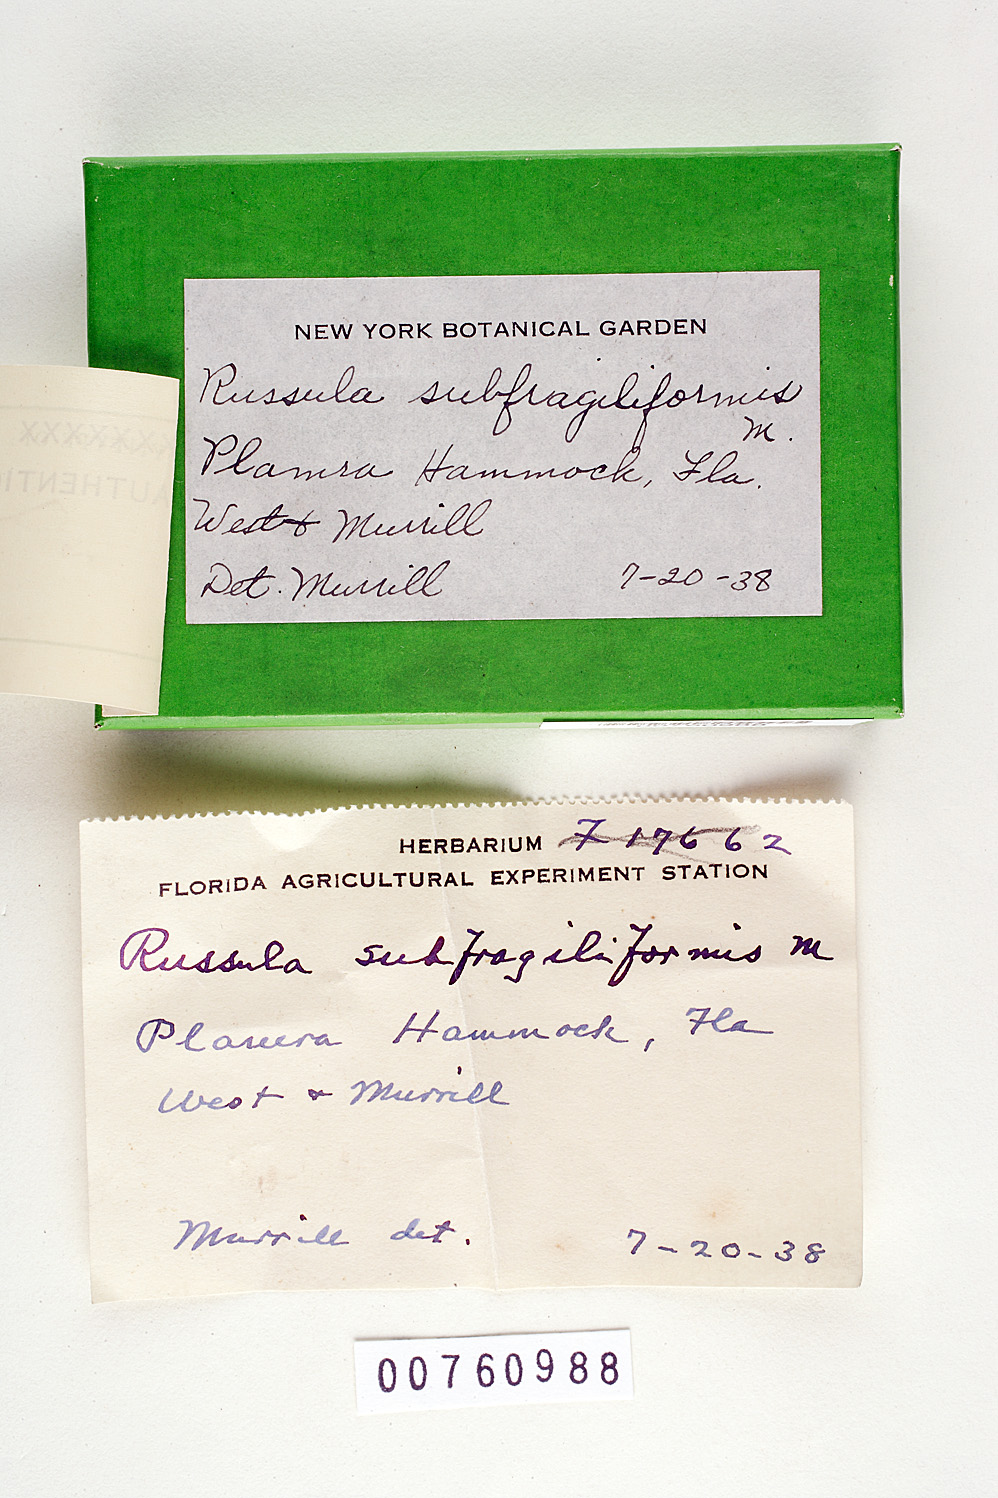 NEW YORK BOTANICAL GARDEN
Russula subfragiliformis
M.
Planera Hammock, Fla.
West & Murrill
Det. Murrill 7-20-38
XXXXXX
AUTHENTI
HERBARIUM F 17662
FLORIDA AGRICULTURAL EXPERIMENT STATION
Russula subfragiliformis M
Planera Hammock, Fla
West & Murrill
Murrill det. 7-20-38
00760988